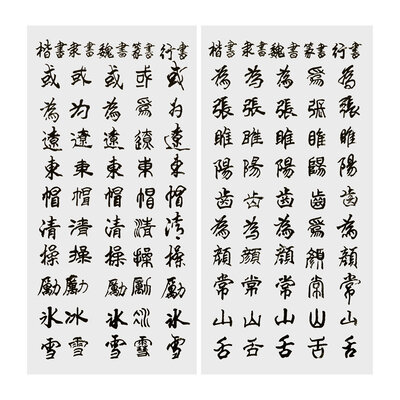 楷書 隶書 魏書 篆書 行書
或 或 或 或 或
為 为 為 為 为
遼 遼 遼 遼 遼
東 東 東 東 東
帽 帽 帽 帽 帽
清 清 清 清 清
操 操 操 操 操
勵 勵 勵 勵 勵
氷 冰 氷 冰 氷
雪 雪 雪 雪 雪
楷書 隶書 魏書 篆書 行書
為 為 為 為 為
張 張 張 張 張
睢 睢 睢 睢 睢
陽 陽 陽 陽 陽
齒 齒 齒 齒 齒
為 為 為 為 為
顏 顏 顏 顏 顏
常 常 常 常 常
山 山 山 山 山
舌 舌 舌 舌 舌